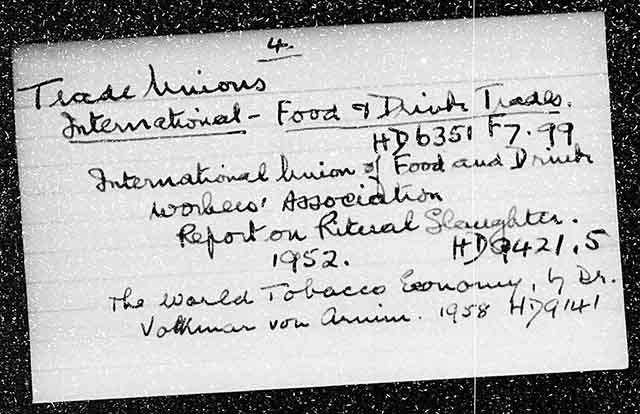 4.
Trade Unions
International - Food & Drink Trades.
HD6351 F7.99
International Union of Food and Drink
Workers' Association
Report on Ritual Slaughter.
1952. HD9421.5
The World Tobacco Economy, by Dr.
Volkmar von Arnim. 1958 HD9141